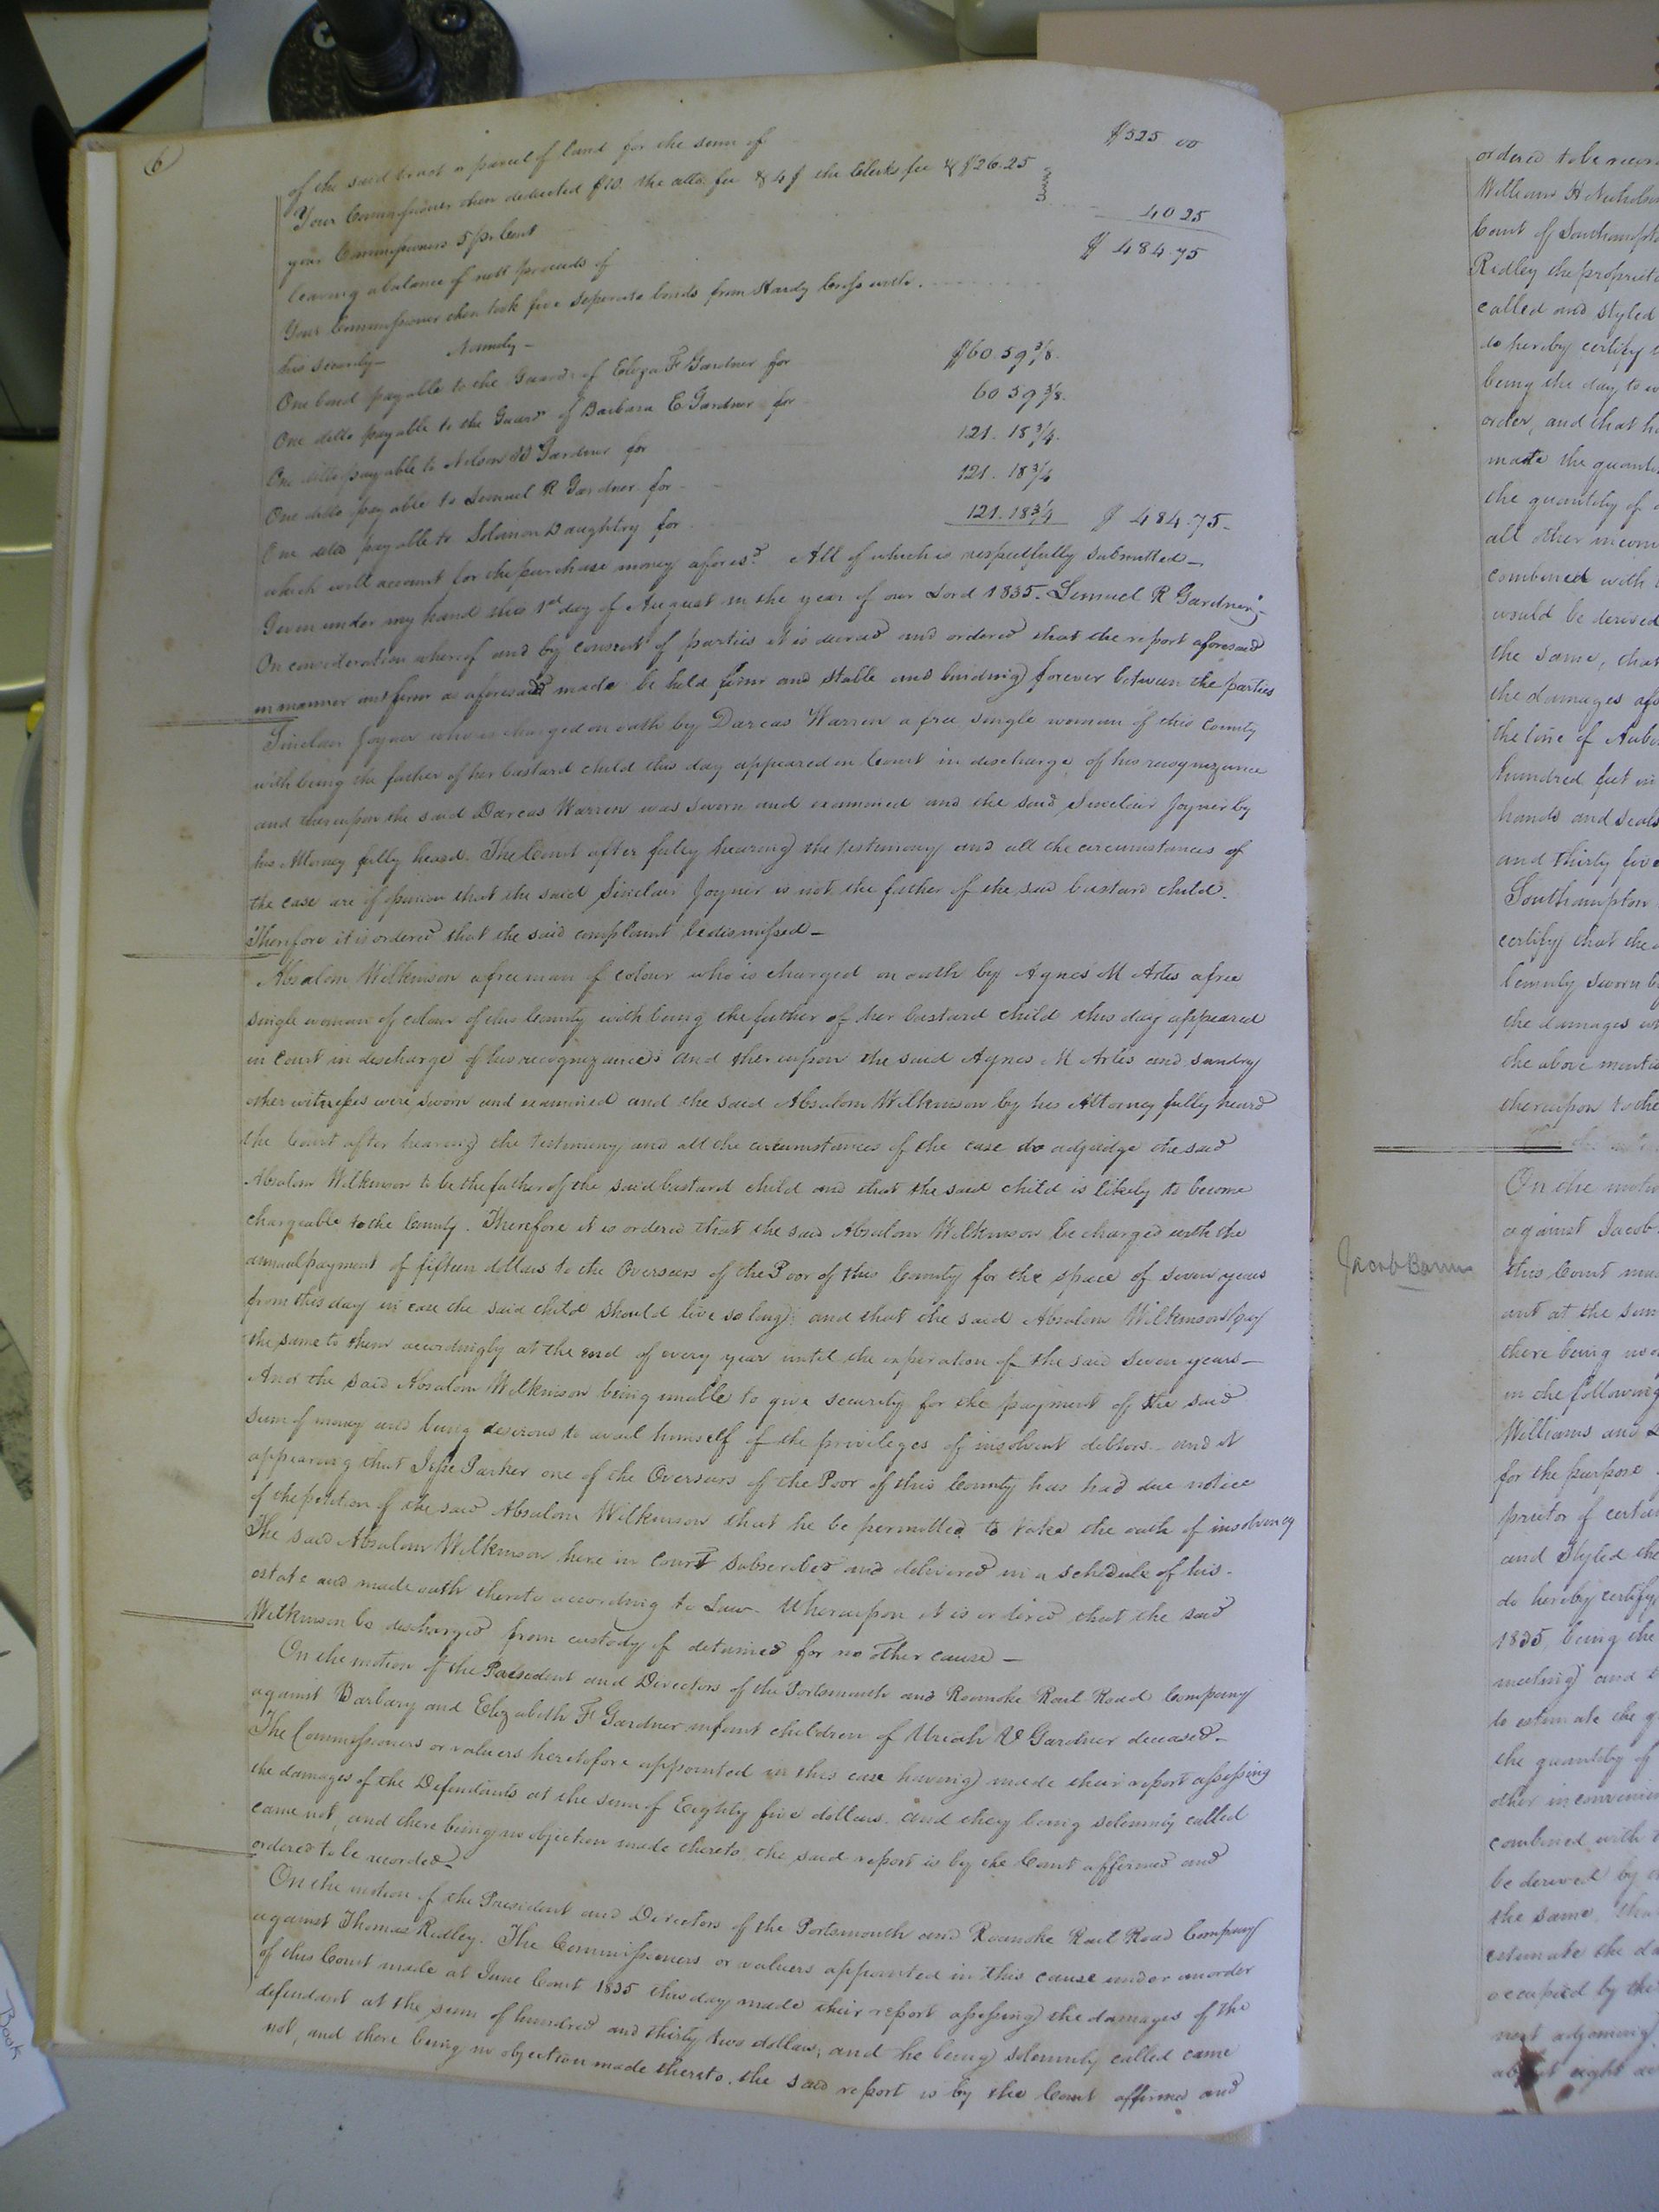 6
of the said tract or parcel of land for the sum of $525 00
Your Commissioner then deducted $10. the atto. fee & 4$ the Clerks fee & $26.25
your Commissioners 5 pr. Cent 40 25
leaving a balance of nett proceeds of $ 484.75
Your Commissioner then took five seperate bonds from Hardy Cross with
his security — Namely —
One bond payable to the Guardn. of Eliza F Gardner for $60.59 3/8.
One ditto payable to the Guardn of Barbara E. Gardner for 60 59 3/8.
One ditto payable to Nelson W Gardner for 121. 18 3/4.
One ditto payable to Lemuel R Gardner for 121. 18 3/4
One ditto payable to Solomon Daughtry for 121.18 3/4 $ 484.75 -
which will account for the purchase money aforesd. All of which is respectfully submitted —
Given under my hand this 1st day of August in the year of our Lord 1835. Lemuel R Gardner; -
On consideration whereof and by consent of parties it is decreed and ordered that the report aforesaid
in manner and form as aforesaid made be held firm and stable and binding forever between the parties
Sinclair Joyner who is charged on oath by Darcas Warren a free single woman of this County
with being the father of her bastard child this day appeared in Court in discharge of his recognizance
and thereupon the said Darcas Warren was sworn and examined and the said Sinclair Joyner by
his Attorney fully heard. The Court after fuley hearing the testimony and all the circumstances of
the case are of opinion that the said Sinclair Joyner is not the father of the said bastard child.
Therefore it is ordered that the said complaint be dismissed —
Absalom Wilkinson a free man of colour who is charged on oath by Agnes M Artis a free
single woman of colour of this County with being the father of her bastard child this day appeared
in Court in discharge of his recognizance and thereupon the said Agnes M Artis and sundry
other witnesses were sworn and examined and the said Absalom Wilkinson by his Attorney fully heard
the Court after hearing the testimony and all the circumstances of the case do adjudge the said
Absalom Wilkinson to be the father of the said bastard child and that the said child is likely to become
chargeable to the County. Therefore it is ordered that the said Absalom Wilkinson be charged with the
annual payment of fifteen dollars to the Overseers of the Poor of this County for the space of seven years
from this day in case the said child should live so long; and that the said Absalom Wilkinson pay
the same to them accordingly at the end of every year until the expiration of the said seven years —
And the said Absalom Wilkinson being unable to give security for the payment of the said
sum of money and being desirous to avail himself of the privileges of insolvent debtors and it
appearing that Jesse Parker one of the Overseers of the Poor of this County has had due notice
of the petition of the said Absalom Wilkinson that he be permitted to take the oath of insolvency
The said Absalom Wilkinson here in Court subscribed and delivered in a schedule of his
estate and made oath thereto according to Law. Whereupon it is ordered that the said
Wilkinson be discharged from custody if detained for no other cause —
On the motion of the President and Directors of the Portsmouth and Roanoke Rail Road Company
against Barbary and Elizabeth F Gardner infant children of Uriah V Gardner deceased —
The Commissioners or valuers heretofore appointed in this case having made their report assessing
the damages of the Defendants at the sum of Eighty five dollars. and they being solemnly called
came not, and there being no objection made thereto, the said report is by the Court affirmed and
ordered to be recorded —
On the motion of the President and Directors of the Portsmouth and Roanoke Rail Road Company
against Thomas Ridley. The Commissioners or valuers appointed in this cause under an order
of this Court made at June Court 1835 this day made their report assessing the damages of the
defendant at the sum of hundred and thirty two dollars, and he being solemnly called came
not, and there being no objection made thereto, the said report is by the Court affirmed and
ordered to be recor
William H Nicholso
Court of Southampt
Ridley the propriet
called and styled
do hereby certify
being the day to
order, and that h
made the quanti
the quantity of
all other incon
combined with
would be derived
the same, that
the damages
the line of
hundred feet in
hands and seals
and thirty five
Southampton
certify that the
lemnly sworn b
the damages
the above mentio
thereupon to the
On the motio
against Jacob
Jacob Barn
this Court
ant at the sum
there being no
in the following
Williams and
for the purpose
prietor of certain
and styled the
do hereby certify
1835, being the
meeting and
to estimate the
the quantity of
other inconvenien
combined with
be derived by
the same, tha
estimate the da
occupied by the
next adjoining
about eight ac
Book